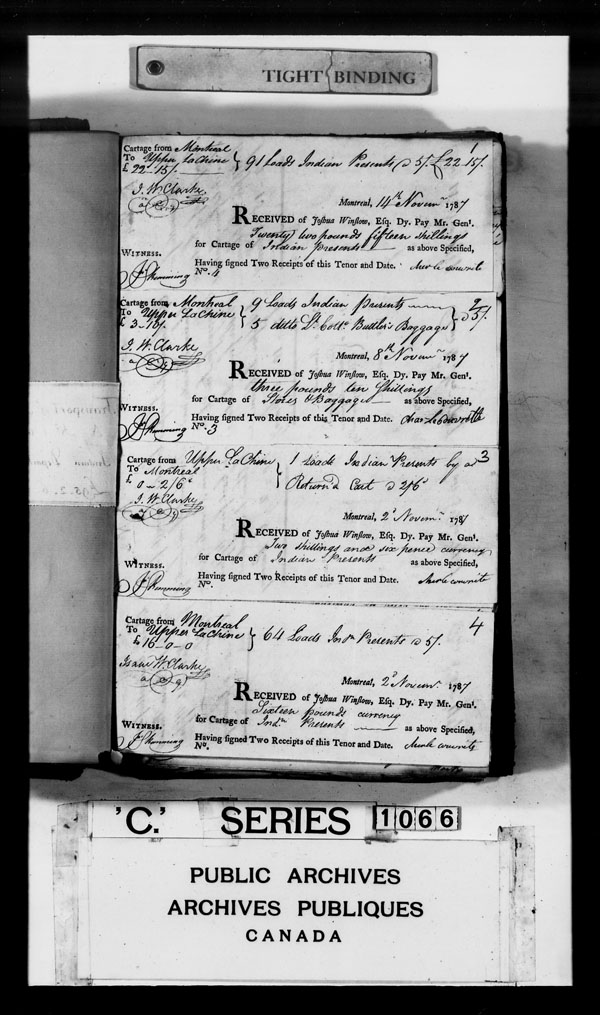 TIGHT BINDING
1
Cartage from Montreal
To Upper La Chine } 91 Loads Indian Presents @ 5/. £22-15/.
£ 22-15/.
I. W. Clarke
Montreal, 14th Novemr 1787
RECEIVED of Joshua Winslow, Esq. Dy. Pay Mr. Genl.
Twenty two pounds fifteen shillings
for Cartage of Indian presents as above Specified,
WITNESS.
Having signed Two Receipts of this Tenor and Date.
No. 4
2
Cartage from Montreal
To Upper La Chine
£ 3-10/.
9 Loads Indian presents
5 ditto Lt. Coll. Butler's Baggage } @ 5/.
I. W. Clarke
Montreal, 8th Novemr 1787
RECEIVED of Joshua Winslow, Esq. Dy. Pay Mr. Genl.
three pounds ten Shillings
for Cartage of Stores & Baggage as above Specified,
WITNESS.
Having signed Two Receipts of this Tenor and Date.
No. 3
3
Cartage from Upper La Chine
To Montreal
£ 0-2/6
1 Load Indian Presents by a
Return'd Cart @ 2/6
I. W. Clarke
Montreal, 2d Novemr. 1787
RECEIVED of Joshua Winslow, Esq. Dy. Pay Mr. Genl.
Two shillings and six pence currency
for Cartage of Indian Presents as above Specified,
WITNESS.
Having signed Two Receipts of this Tenor and Date.
No.
4
Cartage from Montreal
To Upper La Chine } 64 Loads Indn Presents @ 5/.
£ 16-0-0
Isaac W. Clarke
Montreal, 2d Novemr 1787
RECEIVED of Joshua Winslow, Esq. Dy. Pay Mr. Genl.
Sixteen pounds currency
for Cartage of Indn Presents as above Specified,
WITNESS.
Having signed Two Receipts of this Tenor and Date.
No.
'C.' SERIES 1066
PUBLIC ARCHIVES
ARCHIVES PUBLIQUES
CANADA